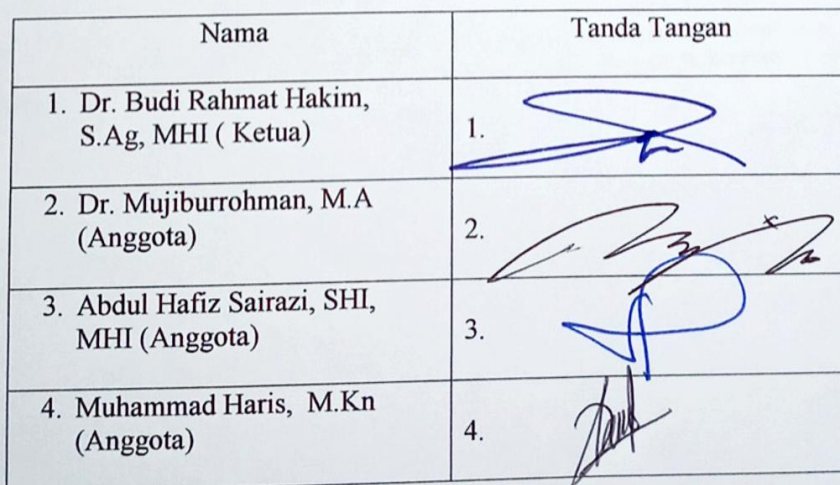 Nama
Tanda Tangan
1. Dr. Budi Rahmat Hakim,
S.Ag, MHI ( Ketua)
1.
2. Dr. Mujiburrohman, M.A
(Anggota)
2.
3. Abdul Hafiz Sairazi, SHI,
MHI (Anggota)
3.
4. Muhammad Haris, M.Kn
(Anggota)
4.